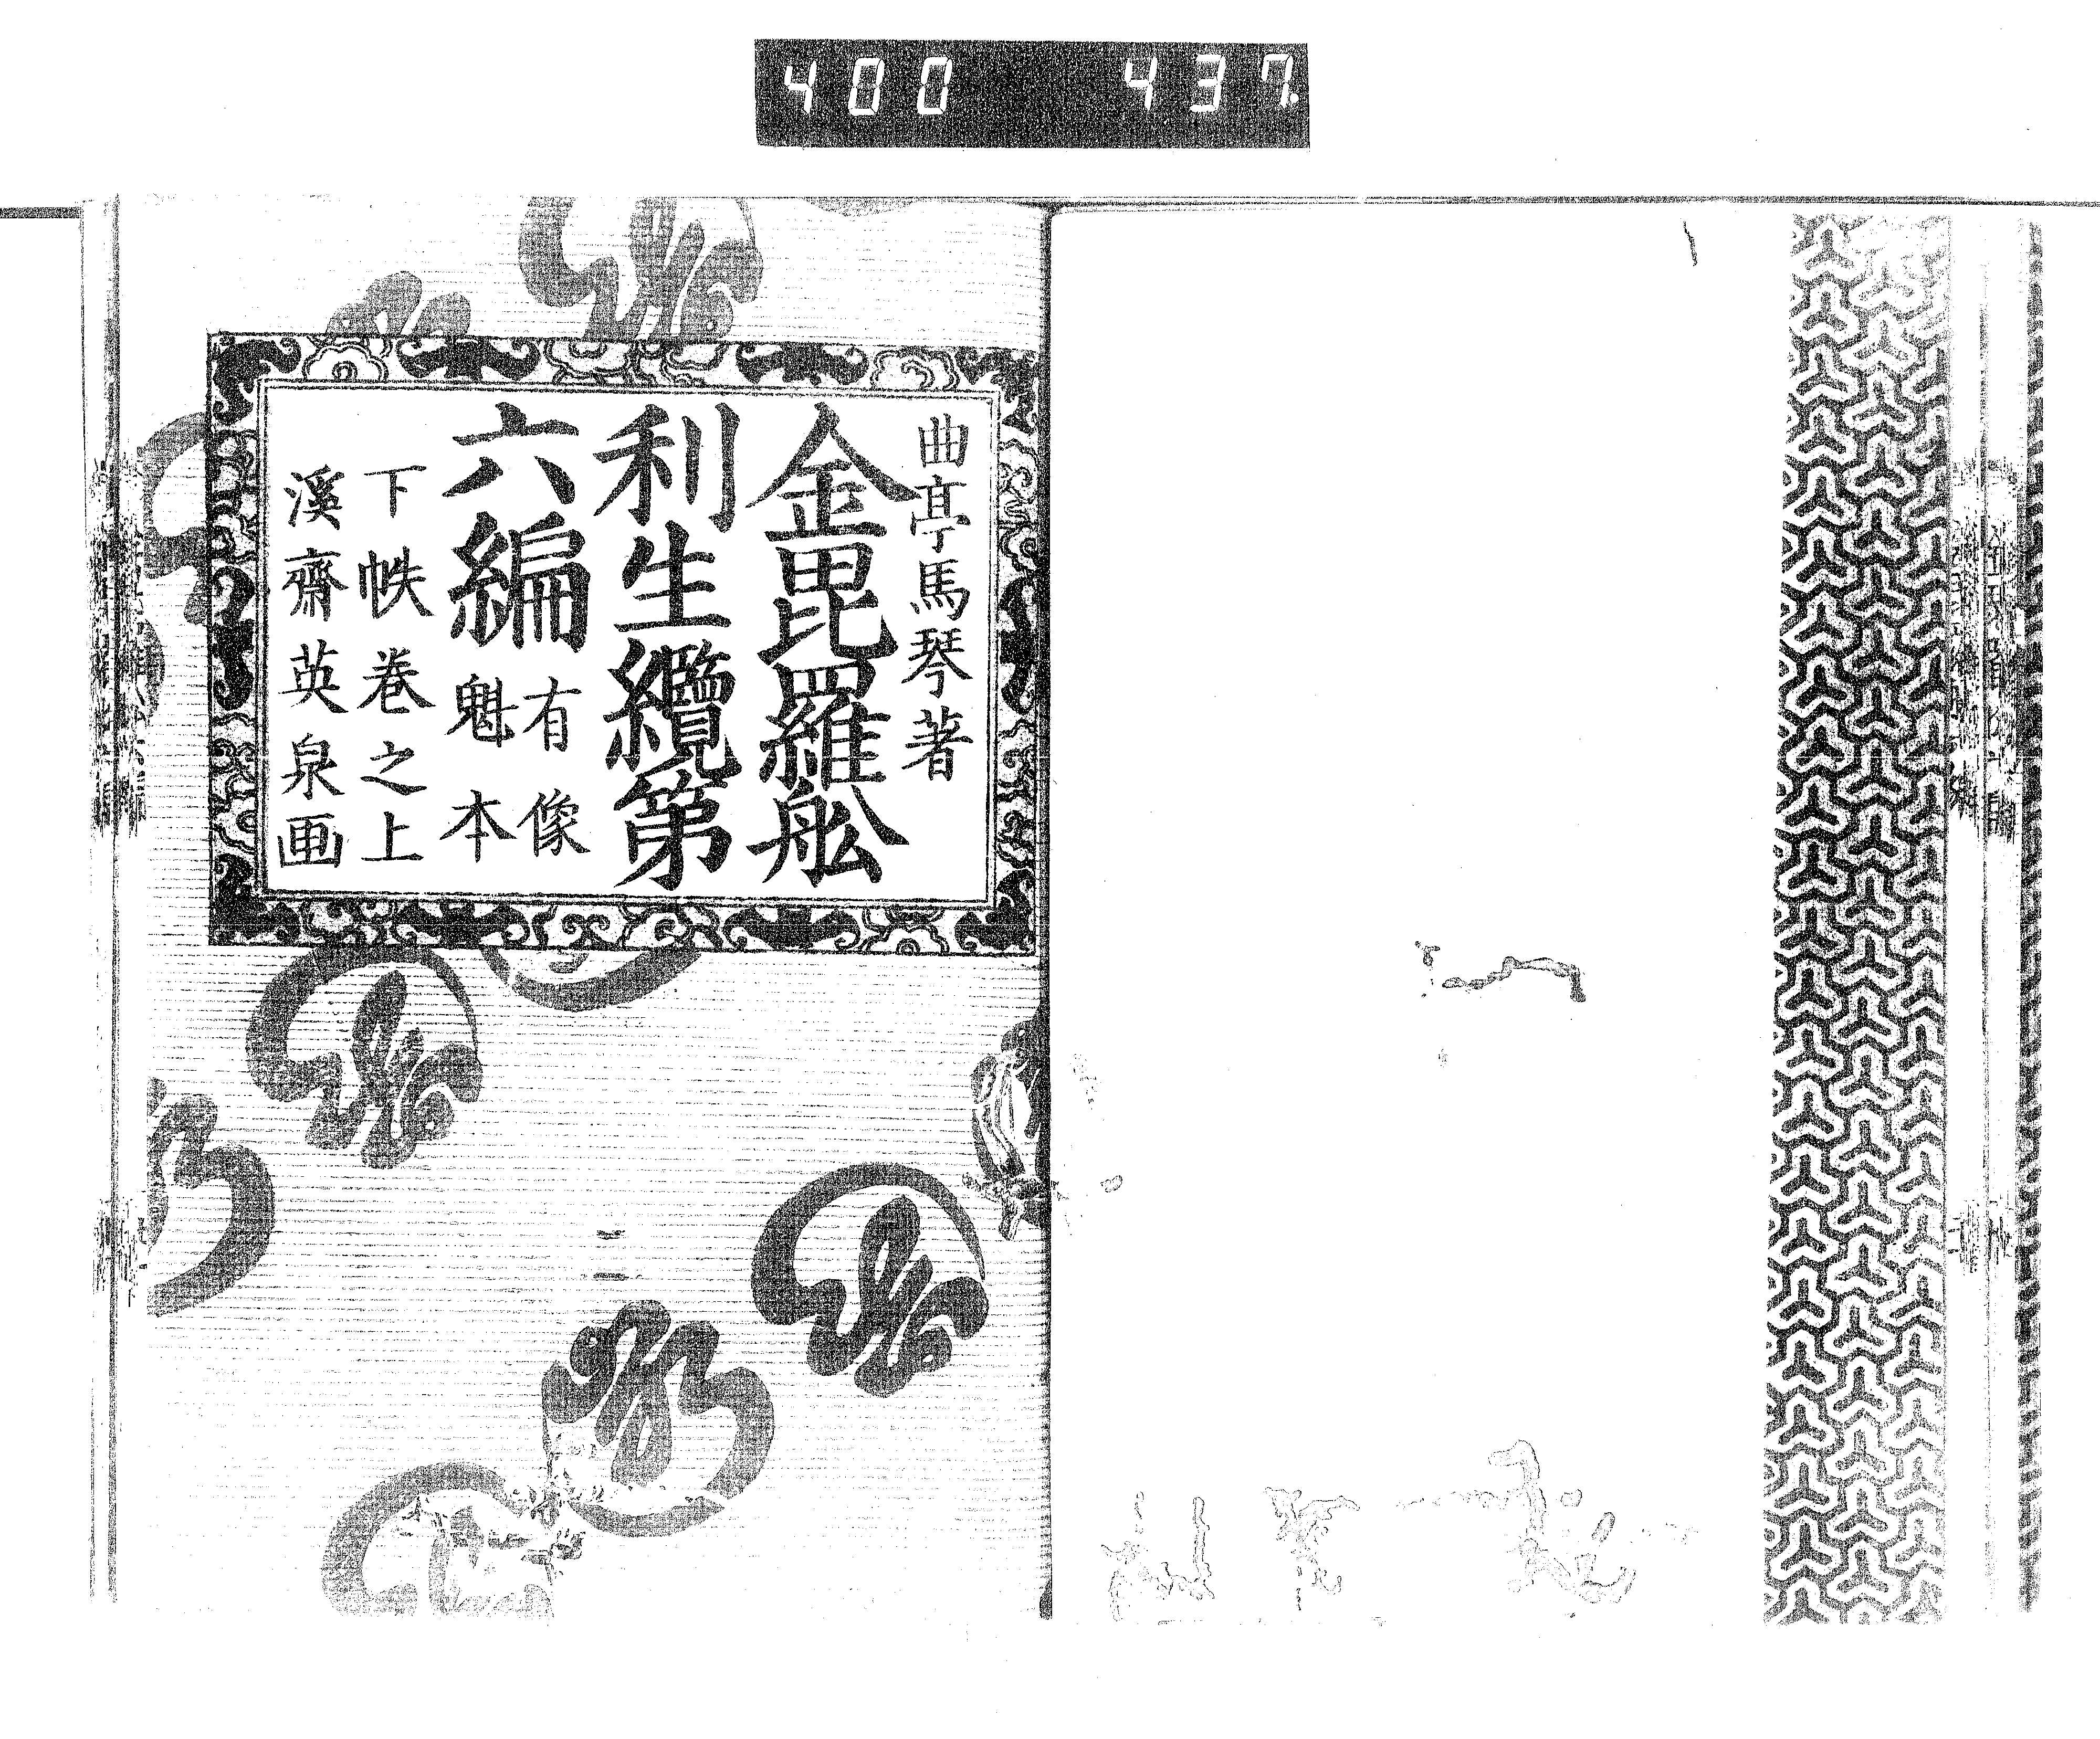 400 437.
曲亭馬琴著
金毘羅舩
利生纜第
六編
有像
魁本
下帙巻之上
溪齋英泉画